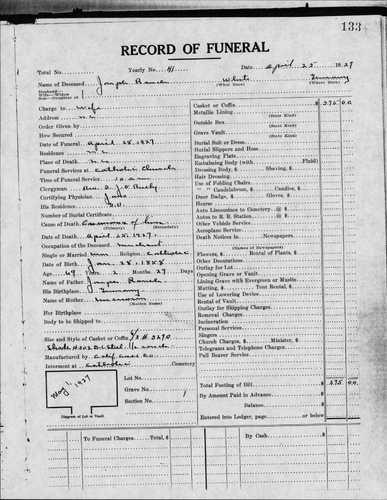 133
RECORD OF FUNERAL
Total No. Yearly No. 41. Date April 25 1927
Name of Deceased Joseph Rauch White Germany
(What Race) (Where Born)
Husband
Wife - Widow of
Son - Daughter
Charge to Wife
Address
Order Given by
How Secured
Date of Funeral April 28, 1927.
Residence
Place of Death
Funeral Services at Catholic Church
Time of Funeral Service 10 a.m.
Clergyman Rev.
Certifying Physician
His Residence
Number of Burial Certificate
Cause of Death
(Primary) (Secondary)
Date of Death April 25, 1927.
Occupation of the Deceased Merchant
Single or Married Mar Religion Catholic.
Date of Birth Jan 28, 1858
Age 69 Years 2 Months 27 Days
Name of Father Joseph Rauch
His Birthplace Germany
Name of Mother
(Maiden Name)
Her Birthplace
Body to be Shipped to
Size and Style of Casket or Coffin
Manufactured by
Interment at Catholic Cemetery
May 1, 1927
Lot No.
Grave No. 1
Section No.
Diagram of Lot or Vault
Casket or Coffin $ 375 00
Metallic Lining
(State Kind)
Outside Box
(State Kind)
Grave Vault
(State Kind)
Burial Suit or Dress
Burial Slippers and Hose
Engraving Plate
Embalming Body (with Fluid)
Dressing Body, $ Shaving, $
Hair Dressing
Use of Folding Chairs
" " Candelabrum, $ Candles, $
Door Badge, $ Gloves, $
Hearse
Auto Limousines to Cemetery @ $
Autos to R. R. Station @ $
Other Vehicle Service
Aeroplane Service
Death Notices in Newspapers
(Names of Newspapers)
Flowers, $ Rental of Plants, $
Other Decorations
Outlay for Lot
Opening Grave or Vault
Lining Grave with Evergreen or Muslin
Matting, $ Tent Rental, $
Use of Lowering Device
Rental of Vault
Outlay for Shipping Charges
Removal Charges
Incineration
Personal Services
Singers
Church Charges, $ Minister, $
Telegrams and Telephone Charges
Pall Bearer Service
Total Footing of Bill $ 375 00
By Amount Paid in Advance
Balance
Entered into Ledger, page or below.
To Funeral Charges Total, $ By Cash $